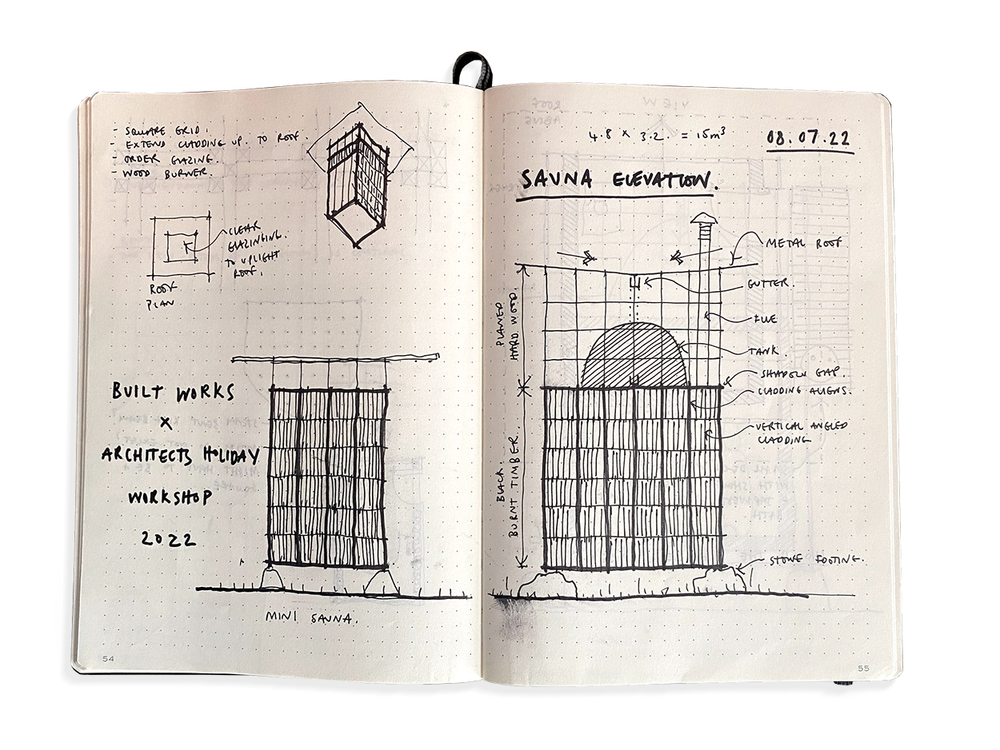 - SQUARE GRID.
- EXTEND CLADDING UP. TO ROOF.
- ORDER GLAZING.
- WOOD BURNER.
CLEAR
GLAZINGING.
TO UPLIGHT
ROOF.
ROOF
PLAN
BUILT WORKS
X
ARCHITECTS HOLIDAY
WORKSHOP
2022
MINI SAUNA.
54
4.8 x 3.2. = 15m³
08.07.22
SAUNA ELEVATION.
METAL ROOF
GUTTER.
FLUE
TANK.
SHADOW GAP.
CLADDING ALIENS.
VERTICAL ANGLED
CLADDING
STONE FOOTING.
PLANED
HARD WOOD.
BLACK.
BURNT TIMBER.
55